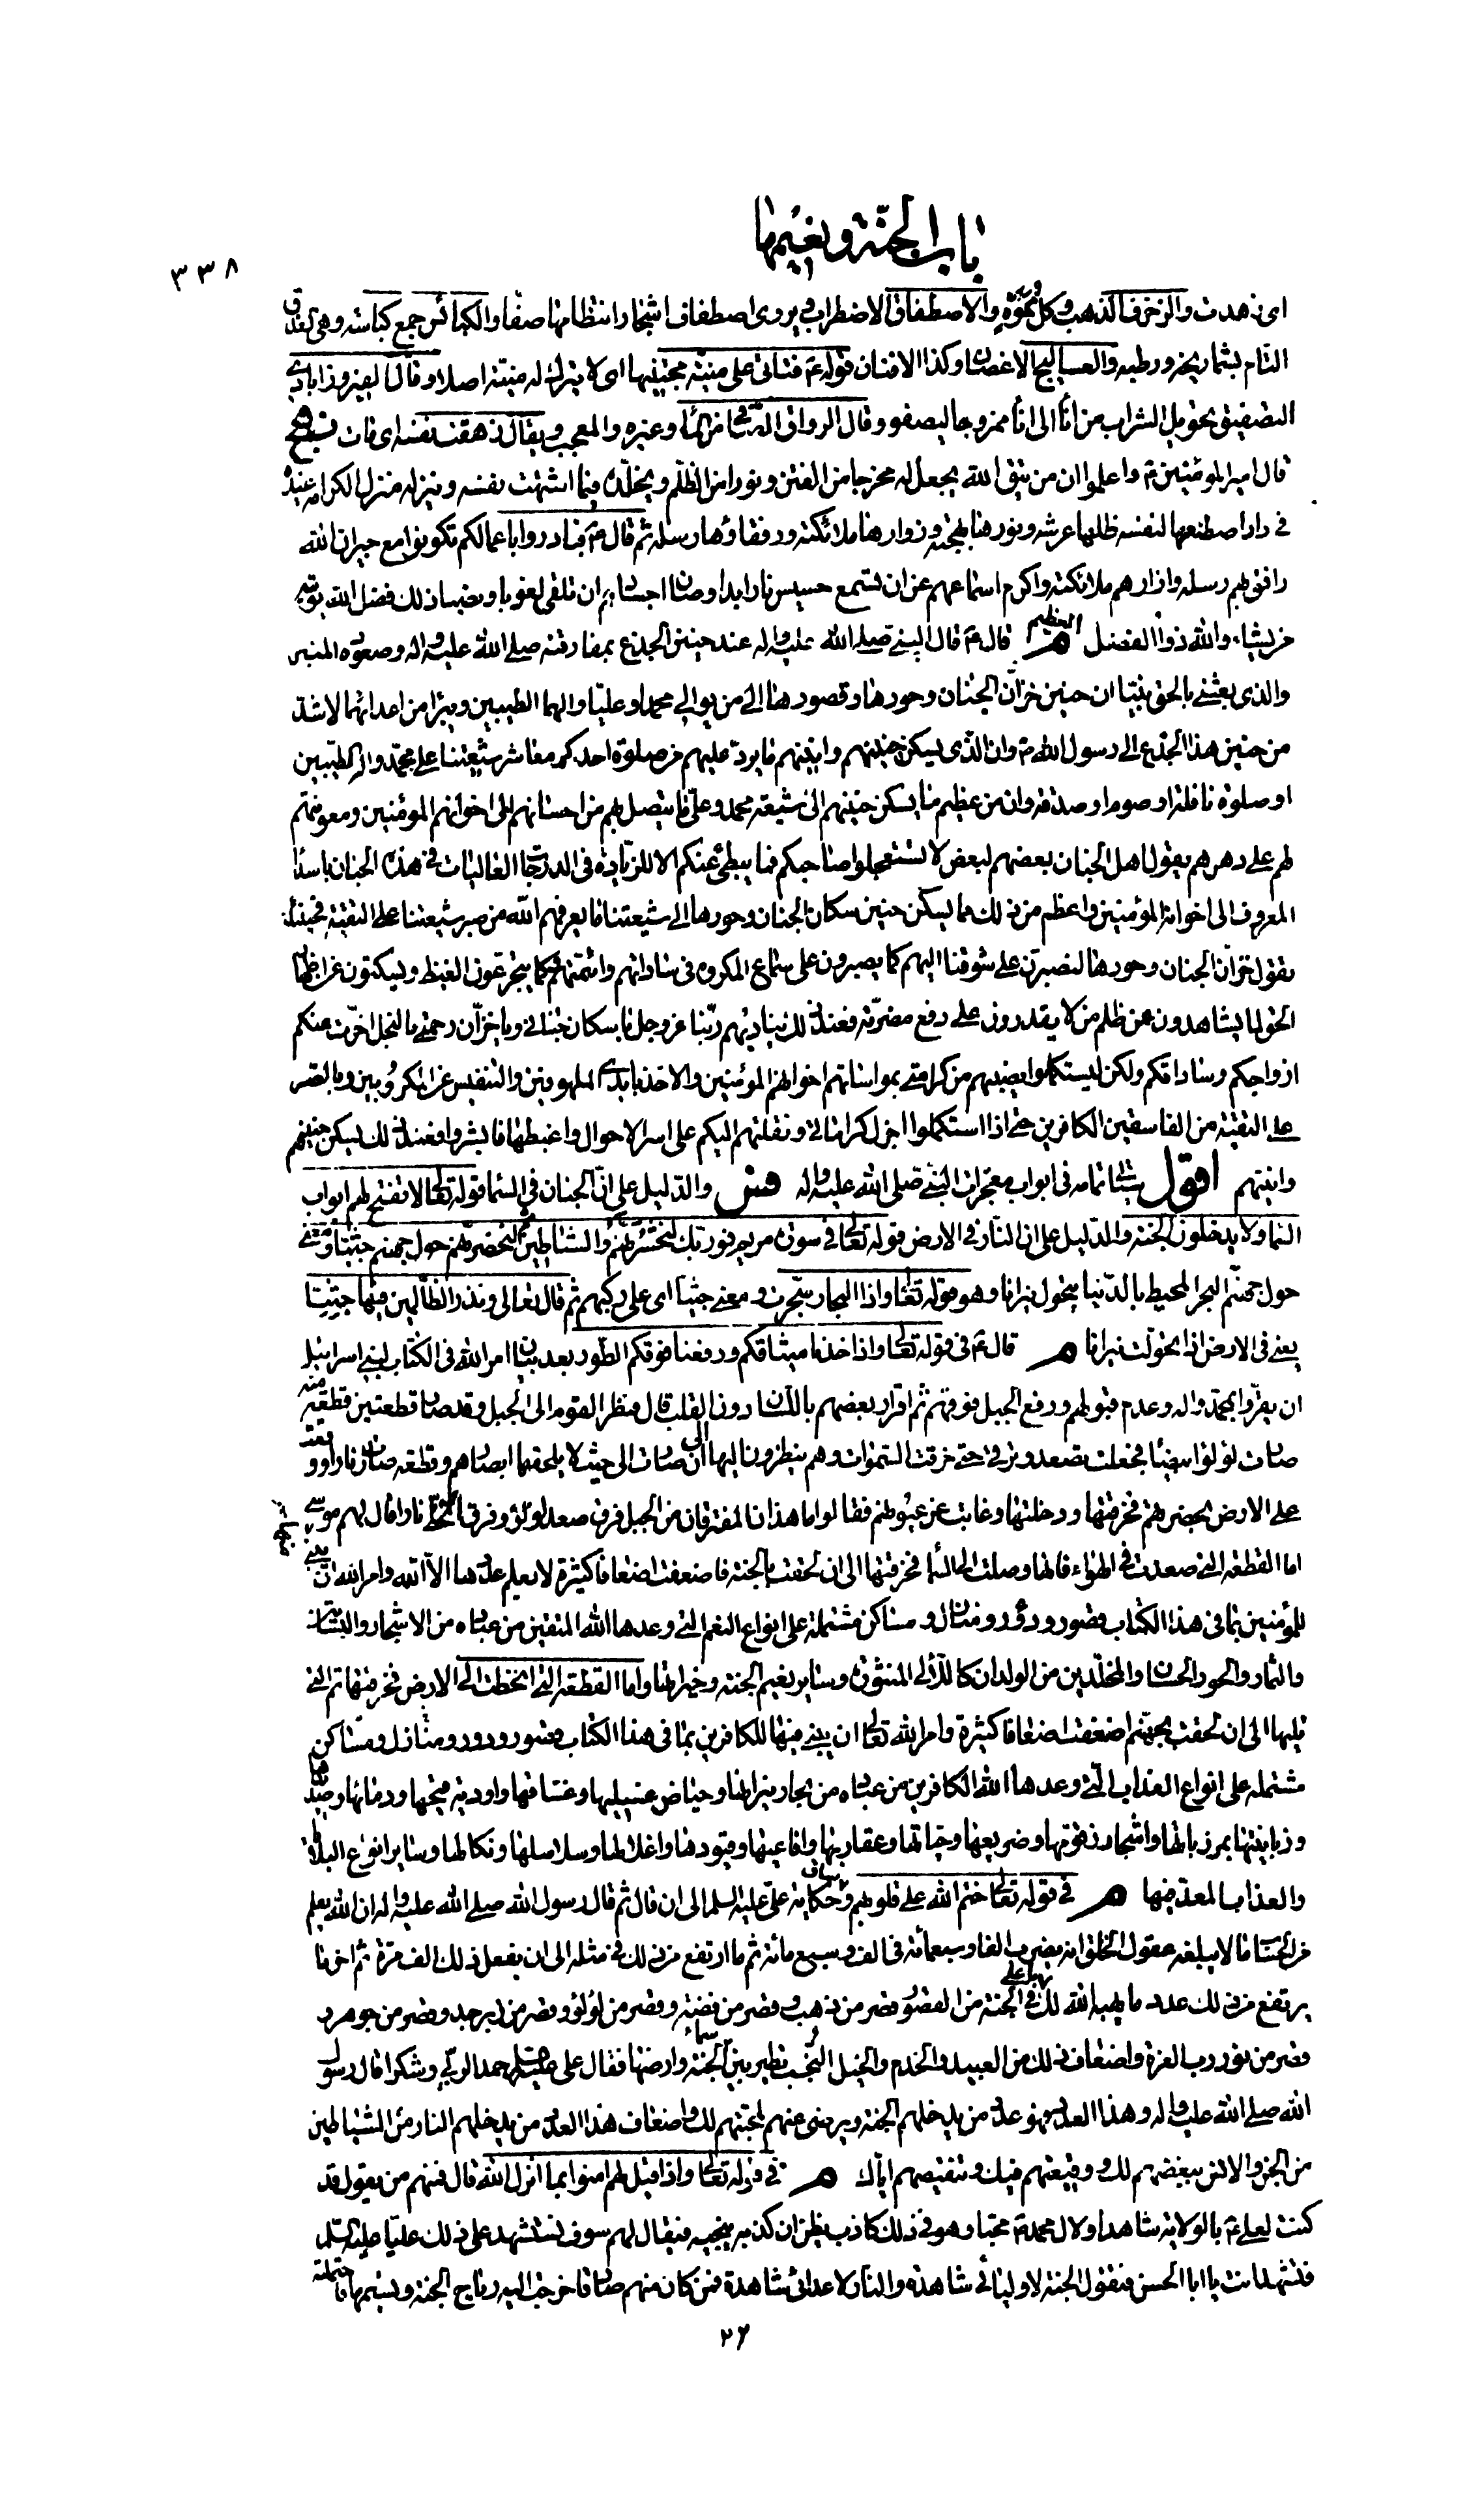 باب الجنة ونعيمها
٣٣٨
اى زهدت والزخرف الذهب وكل مموه والاصطفاق الاضطراب ويروى اصطفاف اشجار اى انتظامها صفا والكبائس جمع كباسة وهى العذق
التام بشماريخه ورطبه والعساليج الاغصان وكذا الافنان قوله ع فتاتى على منية مجتنيها اى لا يترك له منية اصلا وقال الفيروزابادى
التصفيق تحويل الشراب من اناء الى اناء ممزوجا ليصفو وقال الرواق الصافى من الماء وغيره والمعجب ويقال زهقت نفسه اى مات نهج
قال امير المؤمنين ع واعلموا ان من يتق الله يجعل له مخرجا من الفتن ونورا من الظلم ويخلده فيما اشتهت نفسه وينزله منزل الكرامة عنده
فى دار اصطنعها لنفسه ظلها عرشه ونورها بهجته وزوارها ملائكته ورفقاؤها رسله ثم قال ع فبادروا باعمالكم تكونوا مع جيران الله
رافق بهم رسله وازارهم ملائكته واكرم اسماعهم عن ان تسمع حسيس نار ابدا وصان اجسادهم ان تلقى لغوبا ونصبا ذلك فضل الله يؤتيه
من يشاء والله ذو الفضل العظيم م قال ع قال النبى صلى الله عليه واله عند حنين الجذع بمفارقته صلى الله عليه واله وصعوده المنبر
والذى بعثنى بالحق نبيا ان حنين خزان الجنان وحورها وقصورها الى من يوالى محمدا وعليا والهما الطيبين ويبرأ من اعدائهما لاشد
من حنين هذا الجذع الى رسول الله ص وان الذى يسكن حنينهم وانينهم ما يرد عليهم من صلوة احدكم معاشر شيعتنا على محمد واله الطيبين
او صلوة نافلة او صوم او صدقة وان من عظيم ما يسكن حنينهم الى شيعة محمد وعلى ما يتصل بهم من احسانهم الى اخوانهم المؤمنين ومعونتهم
لهم على دهرهم يقول اهل الجنان بعضهم لبعض لا تستعجلوا صاحبكم فما يبطئ عنكم الا للزيادة فى الدرجات العاليات فى هذه الجنان باسداء
المعروف الى اخوانه المؤمنين واعظم من ذلك مما يسكن حنين سكان الجنان وحورها الى شيعتنا ما يعرفهم الله من صبر شيعتنا على التقية فحينئذ
يقول خزان الجنان وحورها لنصبرن على شوقنا اليهم كما يصبرون على سماع المكروه فى ساداتهم وائمتهم وكما يتجرعون الغيظ ويسكتون عن اظهار
الحق لما يشاهدون من ظلم من لا يقدرون على دفع مضرته فعند ذلك يناديهم ربنا عز وجل يا سكان جنانى ويا خزان رحمتى ما لبخل اخرت عنكم
ازواجكم وساداتكم ولكن ليستكملوا نصيبهم من كرامتى بمواساتهم اخوانهم المؤمنين والاخذ بايدى الملهوفين والتنفيس عن المكروبين وبالصبر
على التقية من الفاسقين الكافرين حتى اذا استكملوا اجزل كراماتى ونقلتهم اليكم على اسر الاحوال واغبطها فابشروا فعند ذلك يسكن حنينهم
وانينهم اقول سياتى تمامه فى ابواب معجزات النبى صلى الله عليه واله فس والدليل على ان الجنان فى السماء قوله تعالى لا تفتح لهم ابواب
السماء ولا يدخلون الجنة والدليل على ان النار فى الارض قوله تعالى فى سورة مريم فوربك لنحشرنهم والشياطين ثم لنحضرنهم حول جهنم جثيا ومعنى
حول جهنم البحر المحيط بالدنيا يتحول نيرانا وهو قوله تعالى واذا البحار سجرت ومعنى جثيا اى على ركبهم ثم قال تعالى ونذر الظالمين فيها جثيا
يعنى فى الارض اذا تحولت نيرانا م قال ع فى قوله تعالى واذ اخذنا ميثاقكم ورفعنا فوقكم الطور بعد بيان امر الله فى الكتاب لبنى اسرائيل
ان يقروا بمحمد واله وعدم قبولهم ورفع الجبل فوقهم ثم اقرار بعضهم باللسان دون القلب قال فنظر القوم الى الجبل وقد صار قطعتين قطعة منه
صارت لؤلؤا بيضاء فجعلت تصعد وترقى حتى خرقت السموات وهم ينظرون اليها الى ان صارت الى حيث لا يلحقها ابصارهم وقطعة صارت نارا ووقعت
على الارض بحضرتهم فخرقتها ودخلتها وغابت عن عيونهم فقالوا ما هذان المفترقان من الجبل فرق صعد لؤلؤا وفرق انحط نارا قال لهم موسى
اما القطعة التى صعدت فى الهواء فانها وصلت الى السماء فخرقتها الى ان لحقت بالجنة فاضعفت اضعافا كثيرة لا يعلم عددها الا الله وامر الله ان يبنى
للمؤمنين بما فى هذا الكتاب قصور ودور ومنازل ومساكن مشتملة على انواع النعم التى وعدها الله المتقين من عباده من الاشجار والبساتين
والثمار والحور الحسان والمخلدين من الولدان كاللآلى المنثورة وساير نعيم الجنة وخيراتها واما القطعة التى انحطت الى الارض فخرقتها ثم التى
تليها الى ان لحقت بجهنم اضعفت اضعافا كثيرة وامر الله تعالى ان يبنى منها للكافرين بما فى هذا الكتاب قصور ودور ومنازل ومساكن
مشتملة على انواع العذاب التى وعدها الله الكافرين من عباده من بحار نيرانها وحياض غسلينها وغساقها واودية قيحها ودمائها وصديدها
وزبانيتها بمرزباتها واشجار زقومها وضريعها وحياتها وعقاربها وافاعيها وقيودها واغلالها وسلاسلها ونكالها وساير انواع البلايا
والعذاب المعد فيها م فى قوله تعالى ختم الله على قلوبهم وساق حكاية على عليه السلام الى ان قال ثم قال رسول الله صلى الله عليه واله ان الله يعلم
من الحساب ما لا يبلغه عقول الخلق انه يضرب الفا وسبعمائة فى الف وسبع مائة ثم ما ارتفع من ذلك فى مثله الى ان يفعل ذلك الف مرة ثم اخر ما
يرتفع من ذلك عدد ما يهبه الله لك يا على فى الجنة من القصور قصر من ذهب وقصر من فضة وقصر من لؤلؤ وقصر من زبرجد وقصر من جوهر و
قصر من نور رب العزة واضعاف ذلك من العبيد والخدم والخيل والنجب تطير بين سماء الجنة وارضها فقال على عليه السلام حمدا لربى وشكرا قال رسول
الله صلى الله عليه واله وهذا العدد فهو عدد من يدخلهم الجنة ويرضى عنهم لمحبتهم لك واضعاف هذا العدد من يدخلهم النار من الشياطين
من الجن والانس ببغضهم لك ووقيعتهم فيك وتنقيصهم اياك م فى قوله تعالى واذا قيل لهم امنوا بما انزل الله قال فمنهم من يقول قد
كنت لعلى ع بالولاية شاهدا ولال محمد ع محبا وهو فى ذلك كاذب يظن ان كذبه ينجيه فيقال لهم سوف نستشهد على ذلك عليا عليه السلام
فتشهد انت يا ابا الحسن فتقول الجنة لاوليائى شاهدة والنار لاعدائى شاهدة فمن كان منهم صادقا خرجت اليه رياح الجنة ونسيمها فاحتملته
٢٦